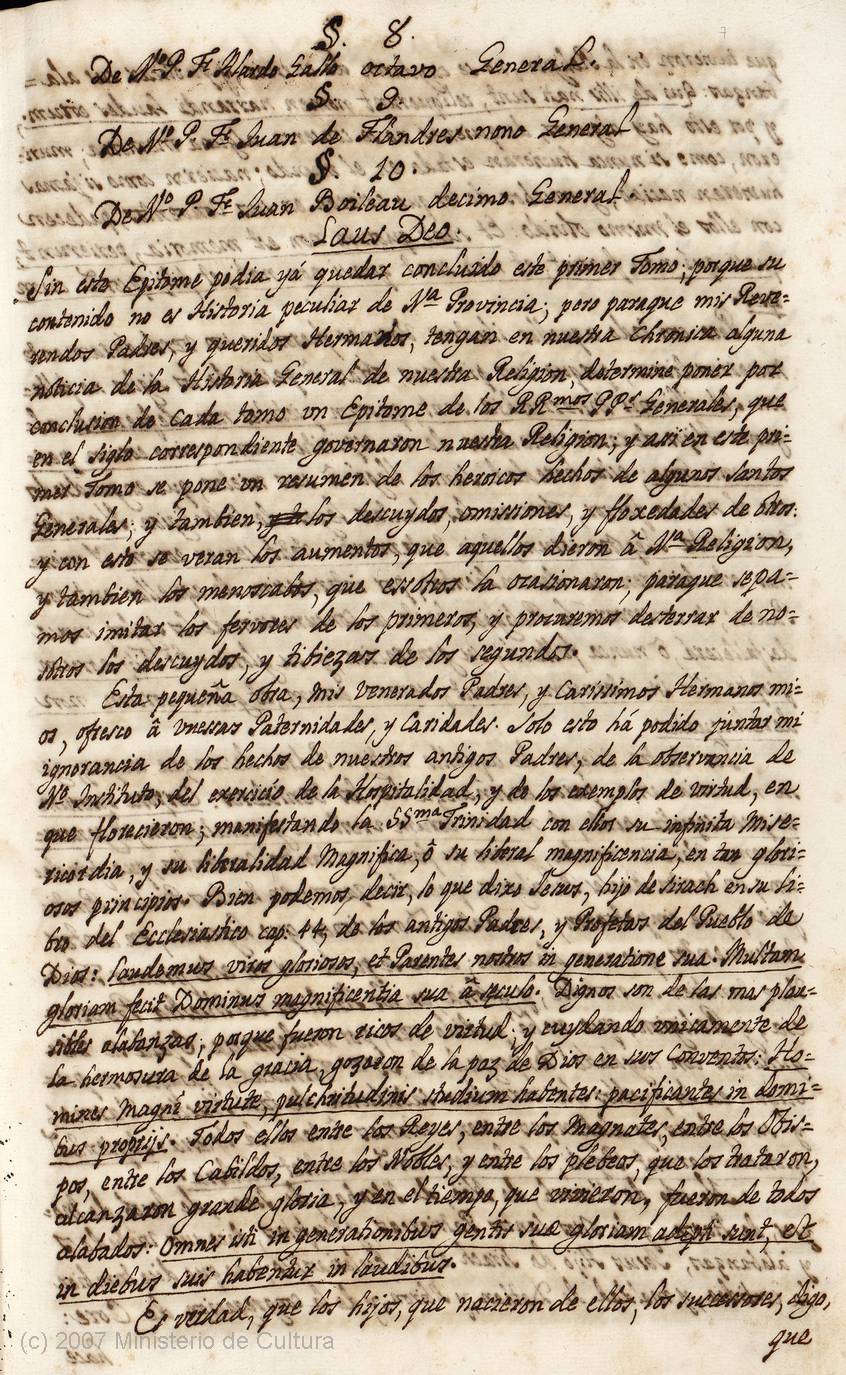 §. 8.
De Nº. P. Fr. Alardo Gallo octavo General.
§. 9.
De Nº. P. Fr. Juan de Flandres nono General
§ 10
De Nº P. Fr. Juan Boileau decimo General.
Laus Deo.
Sin este Epitome podia yá quedar concluido este primer Tomo; porque su
contenido no es Historia peculiar de Nra Provincia; pero paraque mis Reve=
rendos Padres, y queridos Hermanos, tengan en nuestra Chronica alguna
noticia de la Historia General de nuestra Religion, determine poner por
conclusion de cada tomo vn Epitome de los RRmos PPs Generales, que
en el siglo correspondiente governaron nuestra Religion; y asi en este pri=
mer Tomo se pone vn resumen de los heroicos hechos de algunos santos
Generales; y tambien, los descuydos, omissiones, y floxedades de otros:
y con esto se veran los aumentos, que aquellos dieron â Nra Religion,
y tambien los menoscabos, que essotros la ocasionaron; paraque sepa=
mos imitar los fervores de los primeros, y procuremos desterrar de no=
sotros los descuydos, y tibiezas de los segundos.
Esta pequeña obra, mis venerados Padres, y Carissimos Hermanos mi=
os, ofresco â vuessas Paternidades, y Caridades. Solo esto há podido juntar mi
ignorancia de los hechos de nuestros antigos Padres, de la observancia de
Nº Instituto, del exercicio de la Hospitalidad, y de los exemplos de virtud, en
que florecieron; manifestando la SSma Trinidad con ellos su infinita Mise=
ricordia, y su liberalidad Magnifica, ô su liberal magnificencia, en tan glori=
osos principios. Bien podemos decir, lo que dixo Jesus, hijo de Sirach en su Li=
bro del Ecclesiastico cap. 44, de los antigos Padres, y Profetas del Pueblo de
Dios: Laudemus viros gloriosos, et Parentes nostros in generatione sua. Multam
gloriam fecit Dominus magnificentia sua â seculo. Dignos son de las mas plau=
sibles alabanzas; porque fueron ricos de virtud; y cuydando vnicamente de
la hermosura de la gracia, gozaron de la paz de Dios en sus Conventos: Ho=
mines Magni virtute, pulchritudinis studium habentes: pacificantes in domi=
bus proprijs. Todos ellos entre los Reyes, entre los Magnates, entre los Obis=
pos, entre los Cabildos, entre los Nobles, y entre los plebeos, que los trataron,
alcanzaron grande gloria, y en el tiempo, que vivieron, fueron de todos
alabados: Omnes isti in generationibus gentis suæ gloriam adepti sunt, et
in diebus suis habentur in laudibus.
Es verdad, que los hijos, que nacieron de ellos, los successores, digo,
que
(c) 2007 Ministerio de Cultura